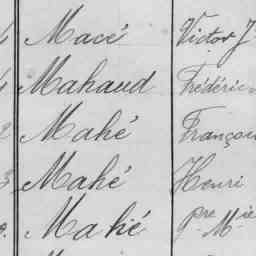 Macé Victor J
Mahaud Frédéric
Mahé Françoi
3 Mahé Henri
Mahé pre Mie